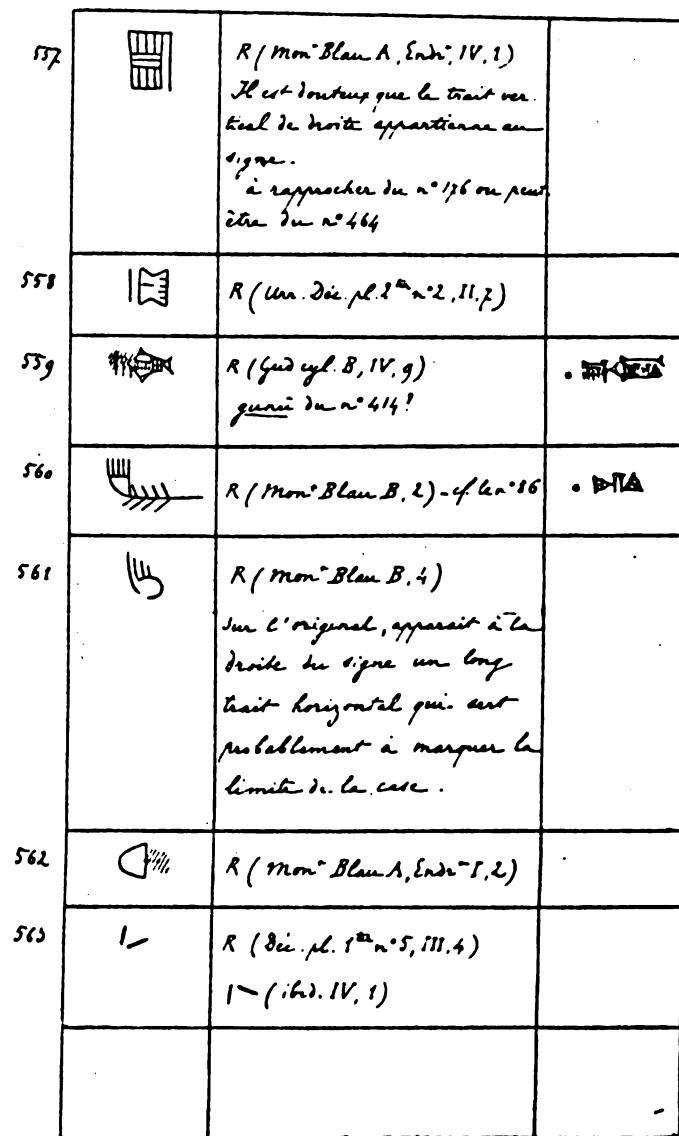 557 R (Mon^t Blau A, Endr^t, IV, 1)
Il est douteux que le trait ver-
tical de droite appartienne au
signe.
à rapprocher du n° 176 ou peut-
être du n° 464
558 R (Urn. Déc. pl. 2 n° 2, II, 7)
559 R (Gud cyl. B, IV, 9)
gunû du n° 414?
560 R (Mon^t Blau B, 2) - cf. le n° 86
561 R (Mon^t Blau B, 4)
Sur l'original, apparait à la
droite du signe un long
trait horizontal qui sert
probablement à marquer la
limite de la case.
562 R (Mon^t Blau A, Endr^t I, 2)
563 R (Déc. pl. 1 n° 5, III, 4)
(ibid. IV, 1)